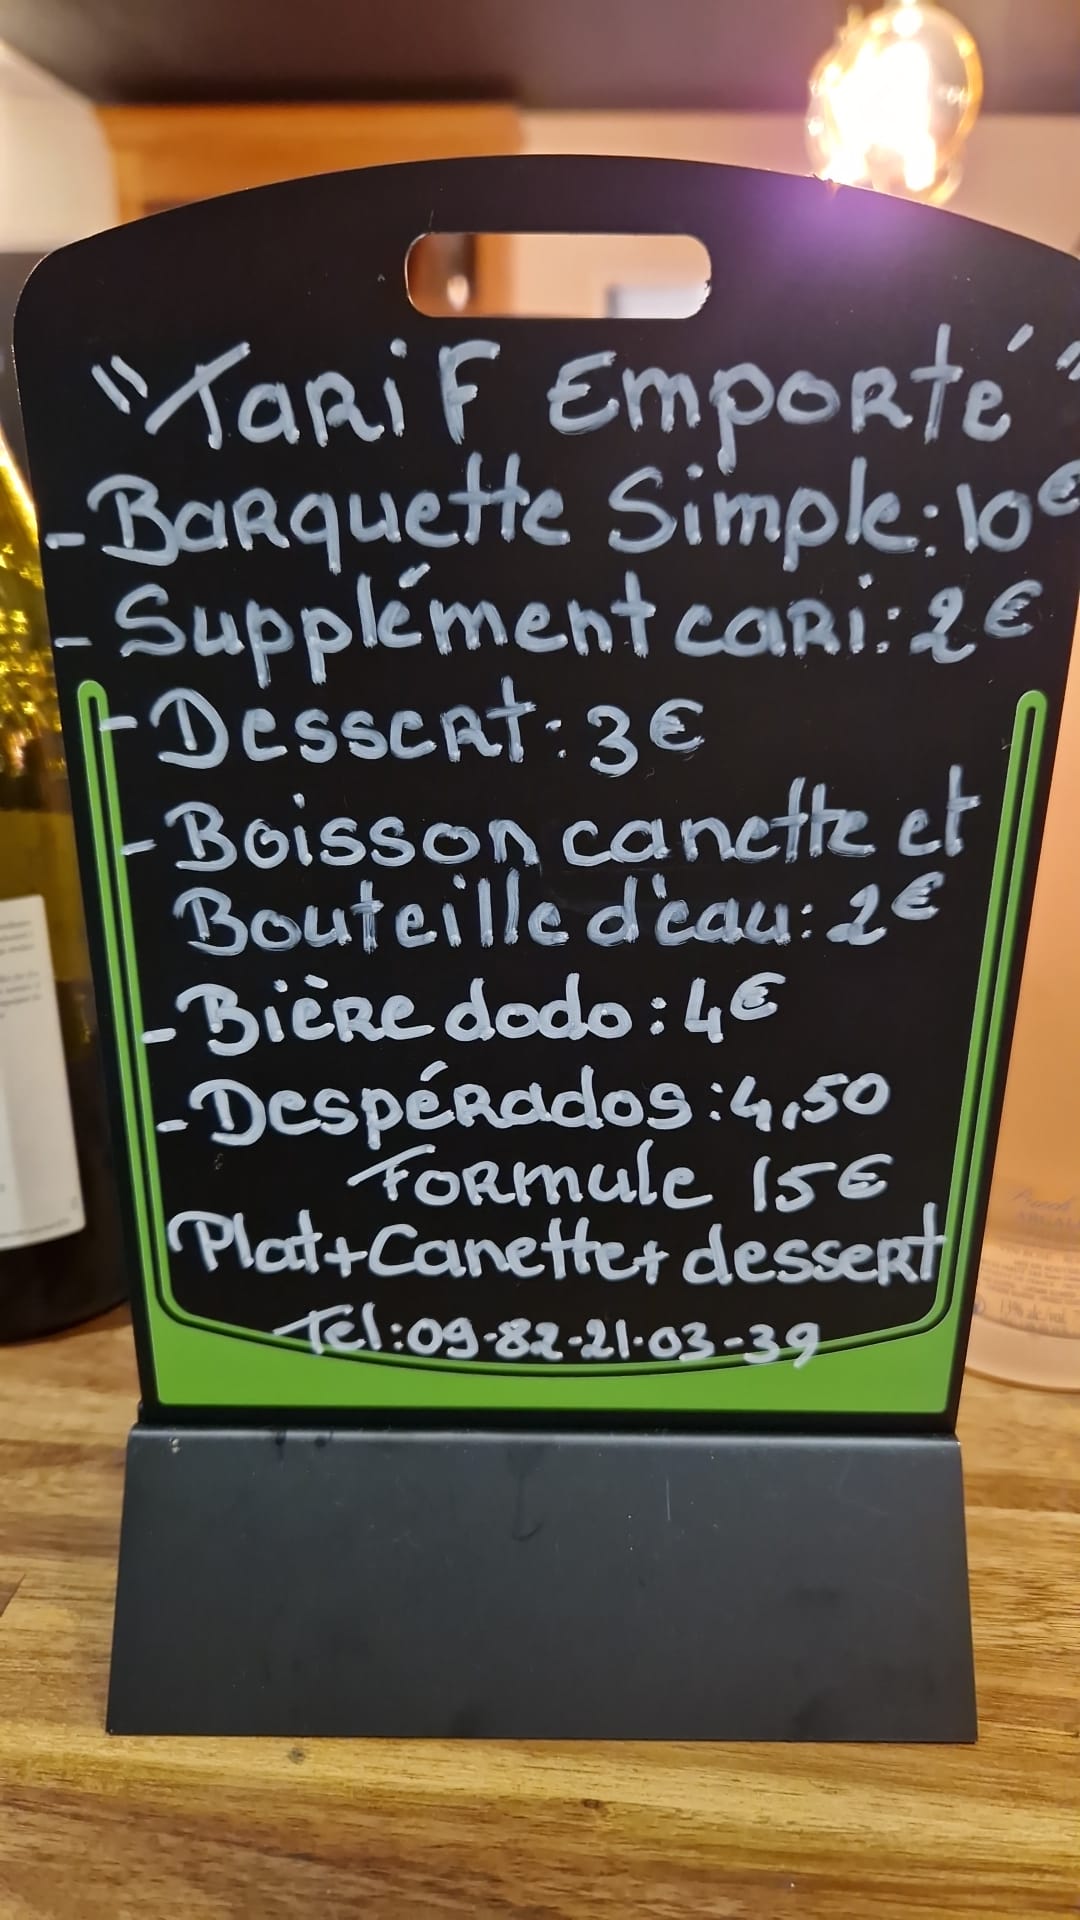 "Tarif Emporté"
- Barquette Simple: 10€
- Supplément cari: 2€
- Dessert: 3€
- Boisson canette et
Bouteille d'eau: 2€
- Bière dodo: 4€
- Despérados: 4,50
Formule 15€
Plat+Canette+dessert
Tel: 09-82-21-03-39